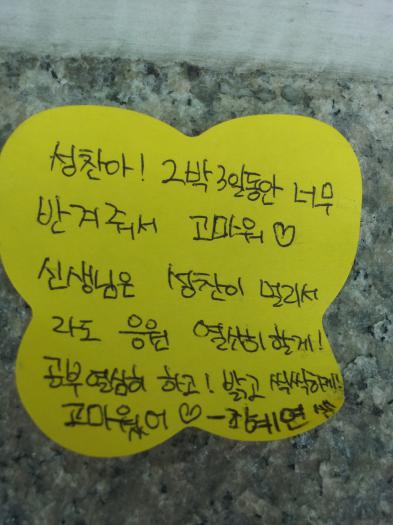 성찬아! 2박3일동안 너무
반겨줘서 고마워♡
신생님은 성찬이 멀리서
라도 응원 열심히 할게!
공부 열심히 하고! 밝고 씩씩하게!
고마웠어 ♡ - 장예연 쌤